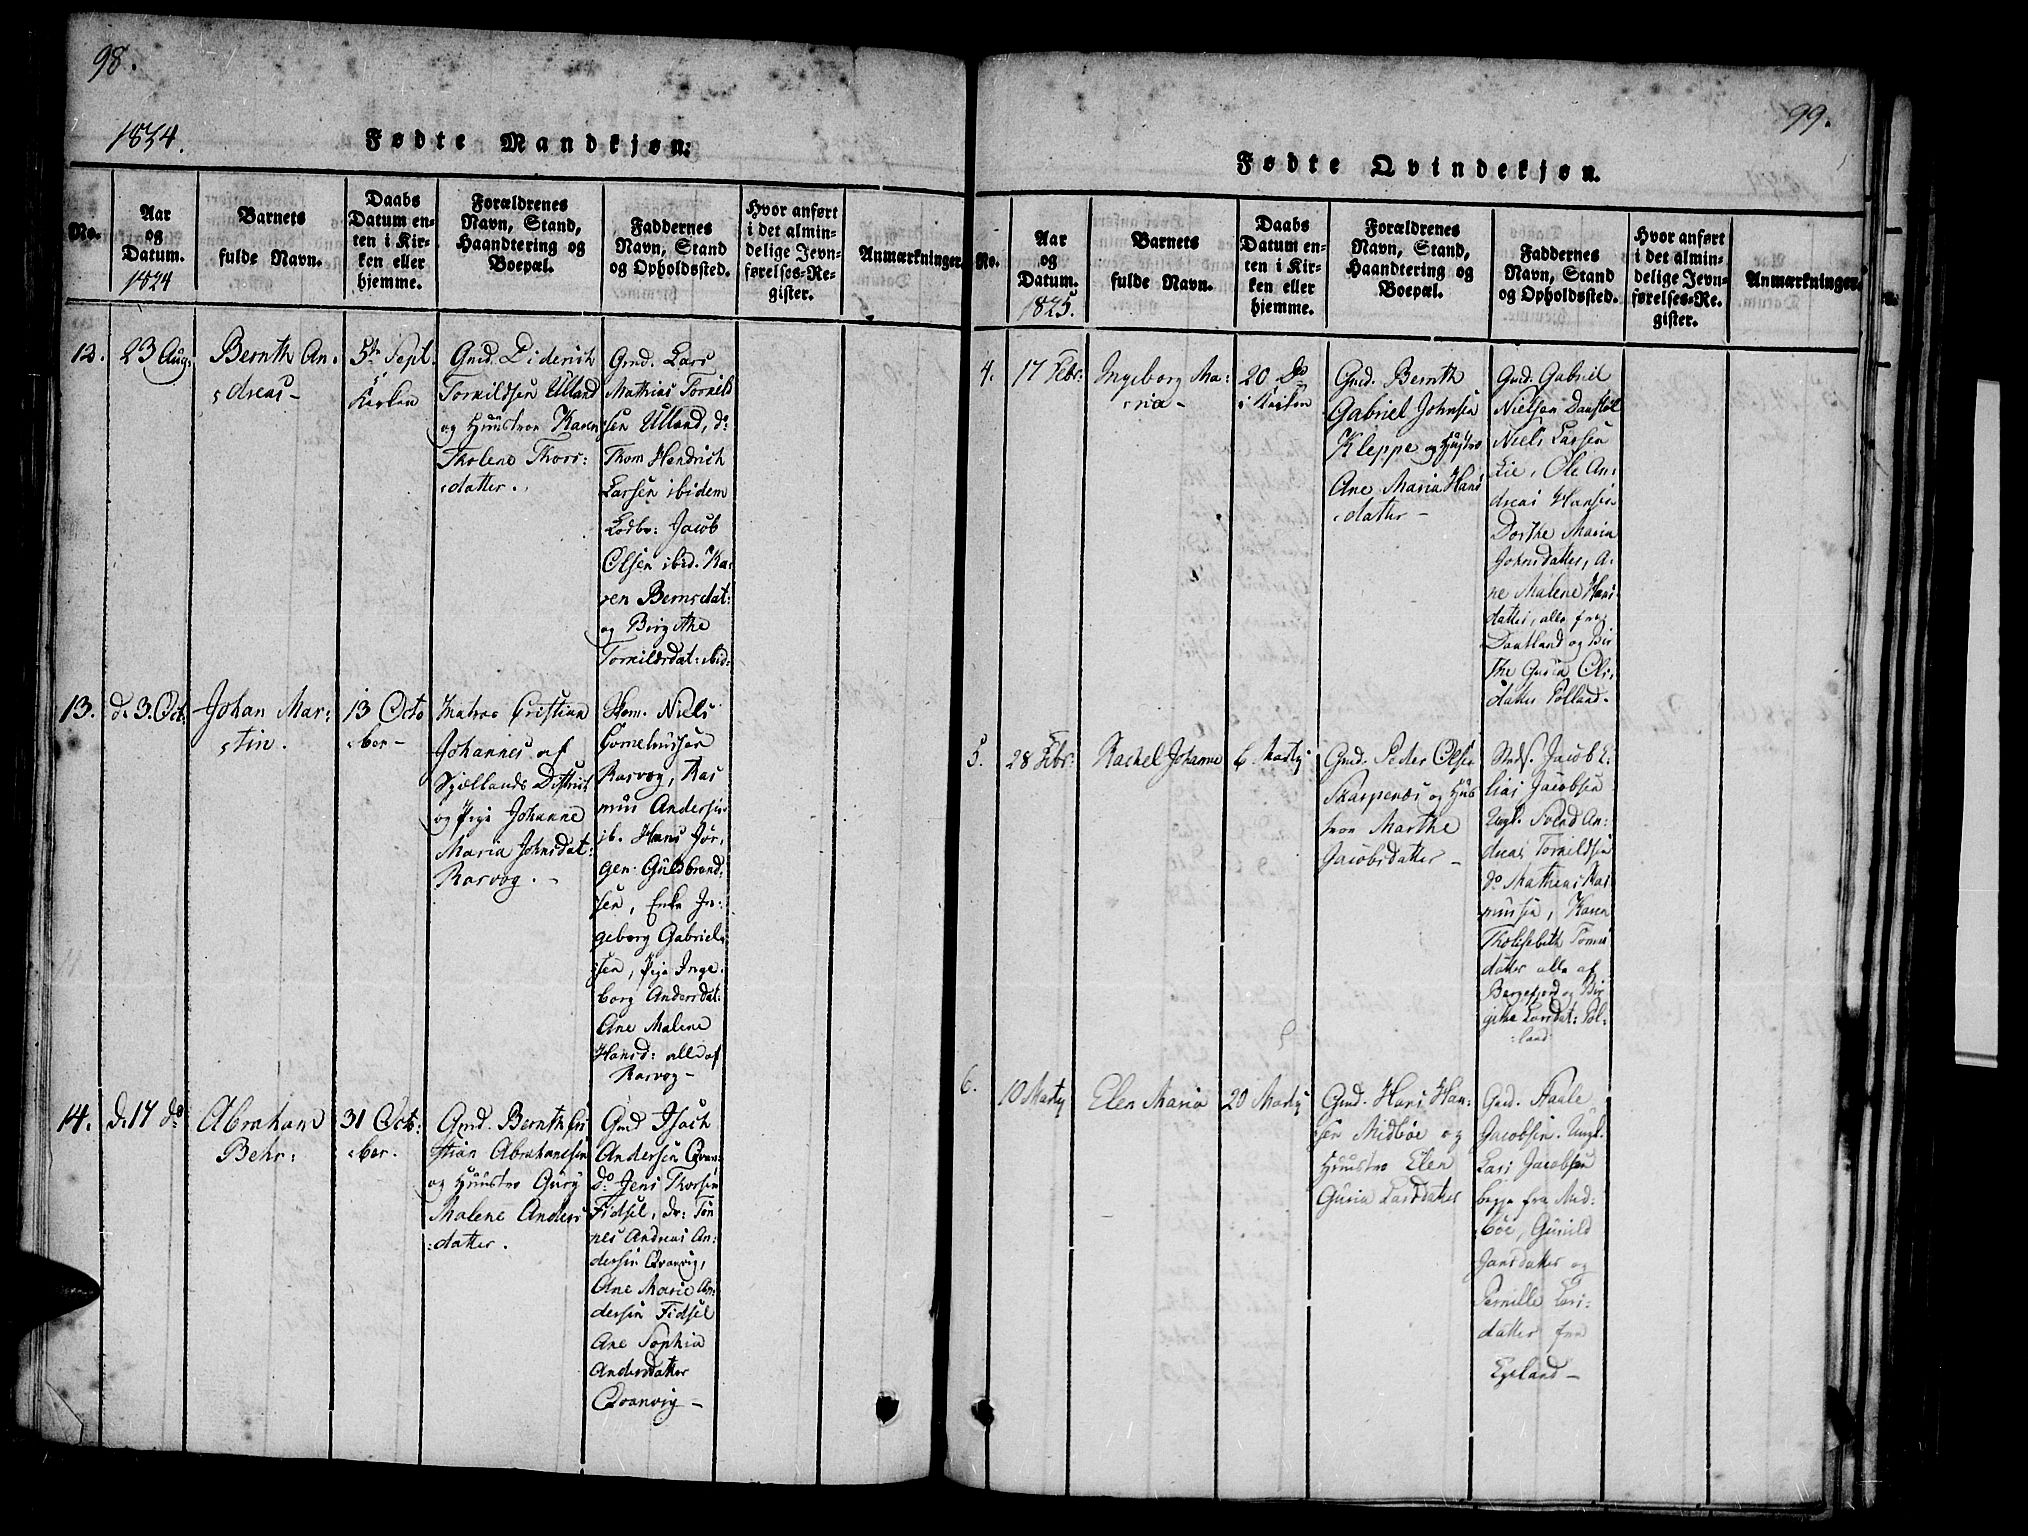 98.
1834.
Fødte Mandkjøn.
No.
Aar
og
Datum.
1824
Barnets
fulde Navn.
Daabs
Datum en-
ten i Kir-
ken eller
hjemme.
Forældrenes
Navn, Stand,
Haandtering og
Boepæl.
Faddernes
Navn, Stand
og Opholdssted.
Hvor anført
i det almin-
delige Jevn-
førelses-Re-
gister.
Anmærkninger.
12.
23 Aug:
Bernth An-
dreas-
5te Sept.
i Kirken
Gmd. Diderich
Tornildsen Ulland
og Huustroe Karen
Tholene Thors:
datter.
Gmd. Lars
Mathias Tornild
sen Ulland, d:
Thom Hendrich
Larsen ibidem
Jacob
Olsen ibid. Ka-
ren Bernsdat:
og Birgithe
Tornildsdat: ibid-
13.
d. 3. Oct:
Johan Mar-
tin.
13 Octo
ber-
Matros Cristian
Johannes af
Sjællands District
og Pige Johanne
Maria Johnsdat:
Rasvog.-
Niels
Corneliussen
Rasvog, Ras
mus Andersen
ib. Hans Jør,
gen Guldbrand
sen, Enke In-
geborg Gabriel-
sen, Pige Inge-
borg Andersdat:
Ane Malene
Hansd: alle af
Rasvog-
14.
d. 17 do
Abraham
Behr:
31 Octo:
ber.
Gmd. Bernth Cri
stian Abrahamsen
og Huustro Gury
Malene Anders
datter.
Gmd Isach
Andersen Qvan-
do. Jens Thorsen
Fidsel, do: Tøn
nes Andreas An-
dersen Qvanvig,
Ane Marie An-
dersen Fidsel
Ane Sophia
Andersdatter
Qvanvig-
99.
Fødte Qvindekjøn.
No.
Aar
og
Datum.
1825.
Barnets
fulde Navn.
Daabs
Datum en-
ten i Kir-
ken eller
hjemme.
Forældrenes
Navn, Stand,
Haandtering og
Boepæl.
Faddernes
Navn, Stand
og Opholdssted.
Hvor anført
i det almin-
delige Jevn-
førelses-Re-
gister.
Anmærkninger.
4.
17 Febr:
Ingeborg Ma-
ria-
20 Do
i Kirken
Gmd. Bernth
Gabriel Johnsen
Kleppe og Hustro
Ane Maria Hans
datter-
Gmd. Gabriel
Nielsen
Niels Larsen
Lie, Ole An-
dreas Hansen
Dorthe Maria
Johnsdatter, A-
ne Malene Hans
datter, alle fra
Dautland og Bir
the Guria Ols-
datterØlland.
5.
28 Febr:
Rachel Johanne
6 Martij
Gmd. Peder Olsen
Skarpenæs og Hus
troe Marthe
Jacobsdatter-
Jacob E-
lias Jacobsen
Ungk. Svend An-
dreas Tornildsen
do Mathias Ras
mussen, Karen
Tholisebeth Tønnes
datter alle af
og Bir
githe Larsdat: Øl-
land
6.
10 Martij
Elen Maria
20 Martij
Gmd. Hans Han-
sen Midbøe og
Huustro Elen
Guria Larsdatter
Gmd. Aanle
Jacobsen. Ungk.
Lars Jacobsen
begge fra Mid-
bøe, Gunild
Jansdatter og
Pernille Lars-
datter fra
Egeland-